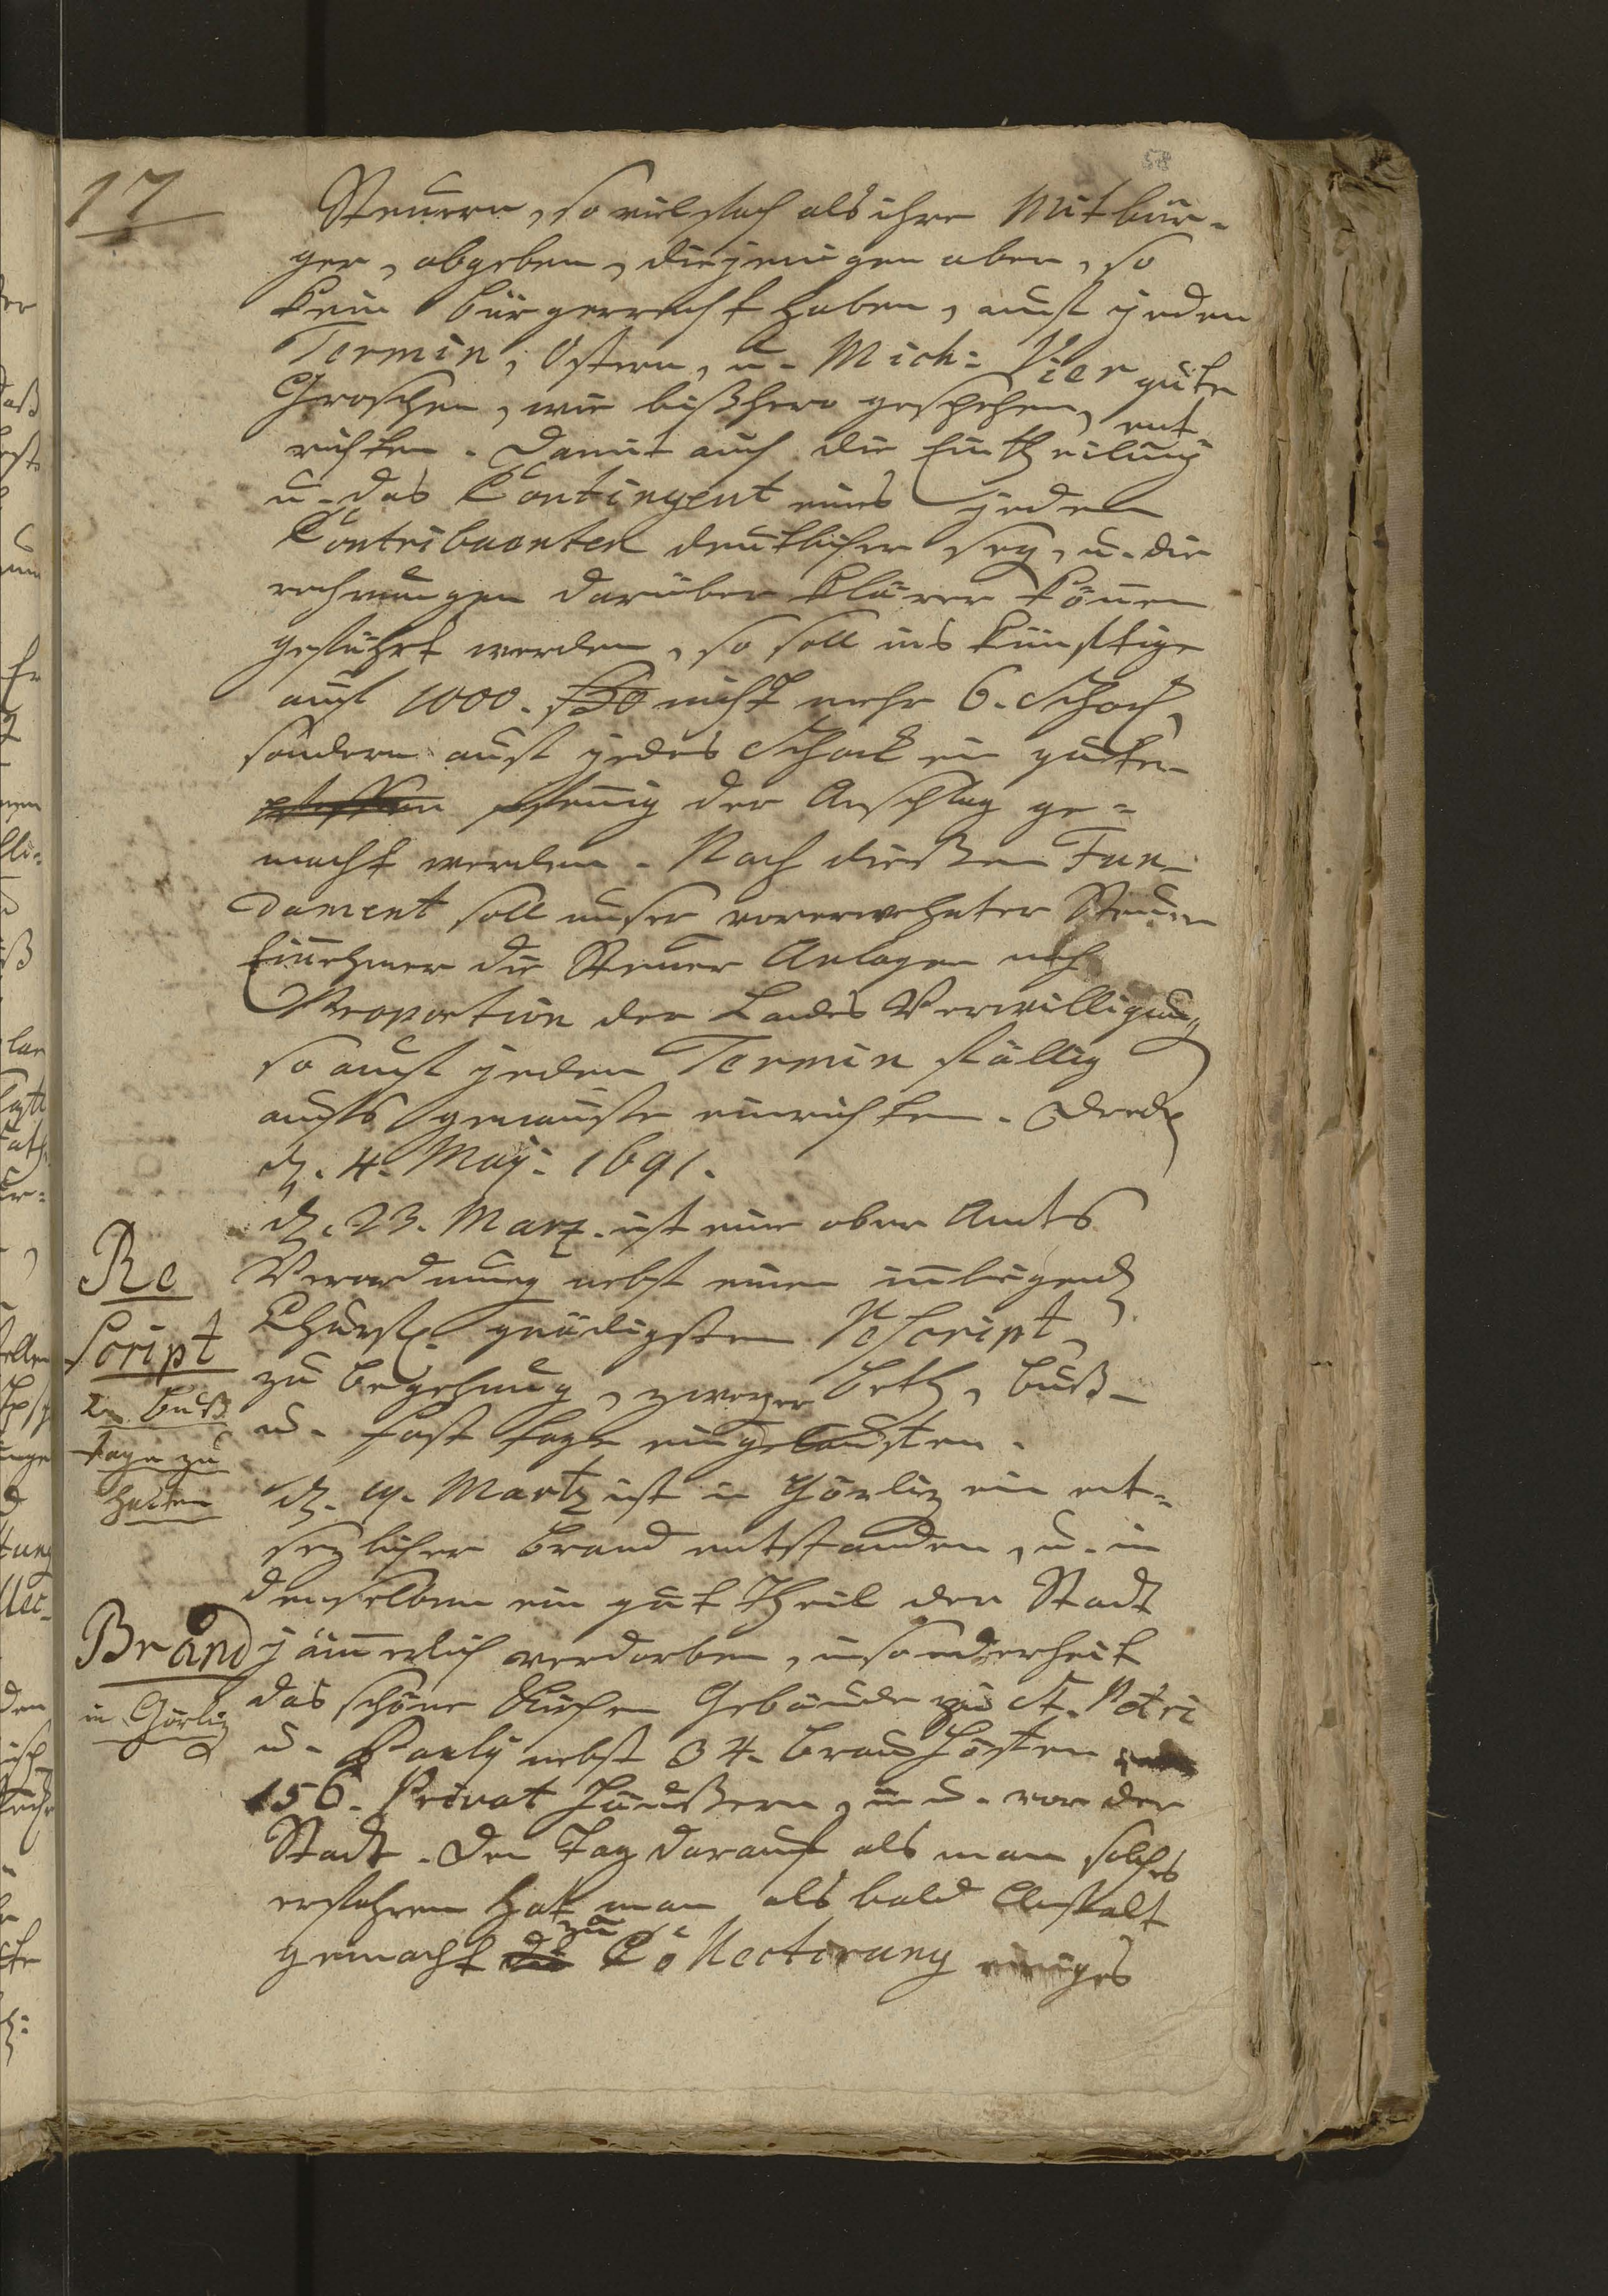 58
17
Steuern, so vielfach als ihre Mitbür-
ger, abgeben, diejenigen aber, so
kein Bürgerrecht haben, auf jeden
Termin, Ostern, u. Mich: Vier gute
Groschen, wie bißhero geschehen, ent
richten. Damit auch die Eintheilung
u. das Contingent eines jeden
Contribuenten deutlicher sey, u. die
rechnungen darüber klärer können
geführt werden, so soll ins künfftige
auf 1000. nicht mehr 6. Schock
sondern auf jedes Schock ein guter
pfennig der Anschlag ge=
macht werden. Nach dießen Fun-
dament soll unser vorerwehnter Steuer
Einnehmer die Steuer Anlagen nach
Proportion der Landes Verwilligung,
so auf jeden Termin fällig
aufs genauste einrichten. Dreßd
d. 4. Maj. 1691.
d. 23. Marz. ist eine ober Amts
Verordnung nebst einen innliegend
Churf. gnädigsten Rescript,
zu begehung, zweyer Beth, Buß-
u. Fast tage eingelauffen.
Re
script
2. Buß
tage zu
halten
d. 19. Martz ist in Görliz ein ent-
sezlicher Brand entstanden, u. in
denselben ein gut Theil der Stadt
jämerlich verdorben, insonderheit
das schöne Kirchen Gebäude zu St. Petri
u. Pauly nebst 34. Brau Höffen
156. Privat Häußern, in u. vor der
Stadt. Den Tag darauf als man solches
erfahren hat man als bald Anstalt
gemacht zu Collectirung einiges
Brand
in Görliz